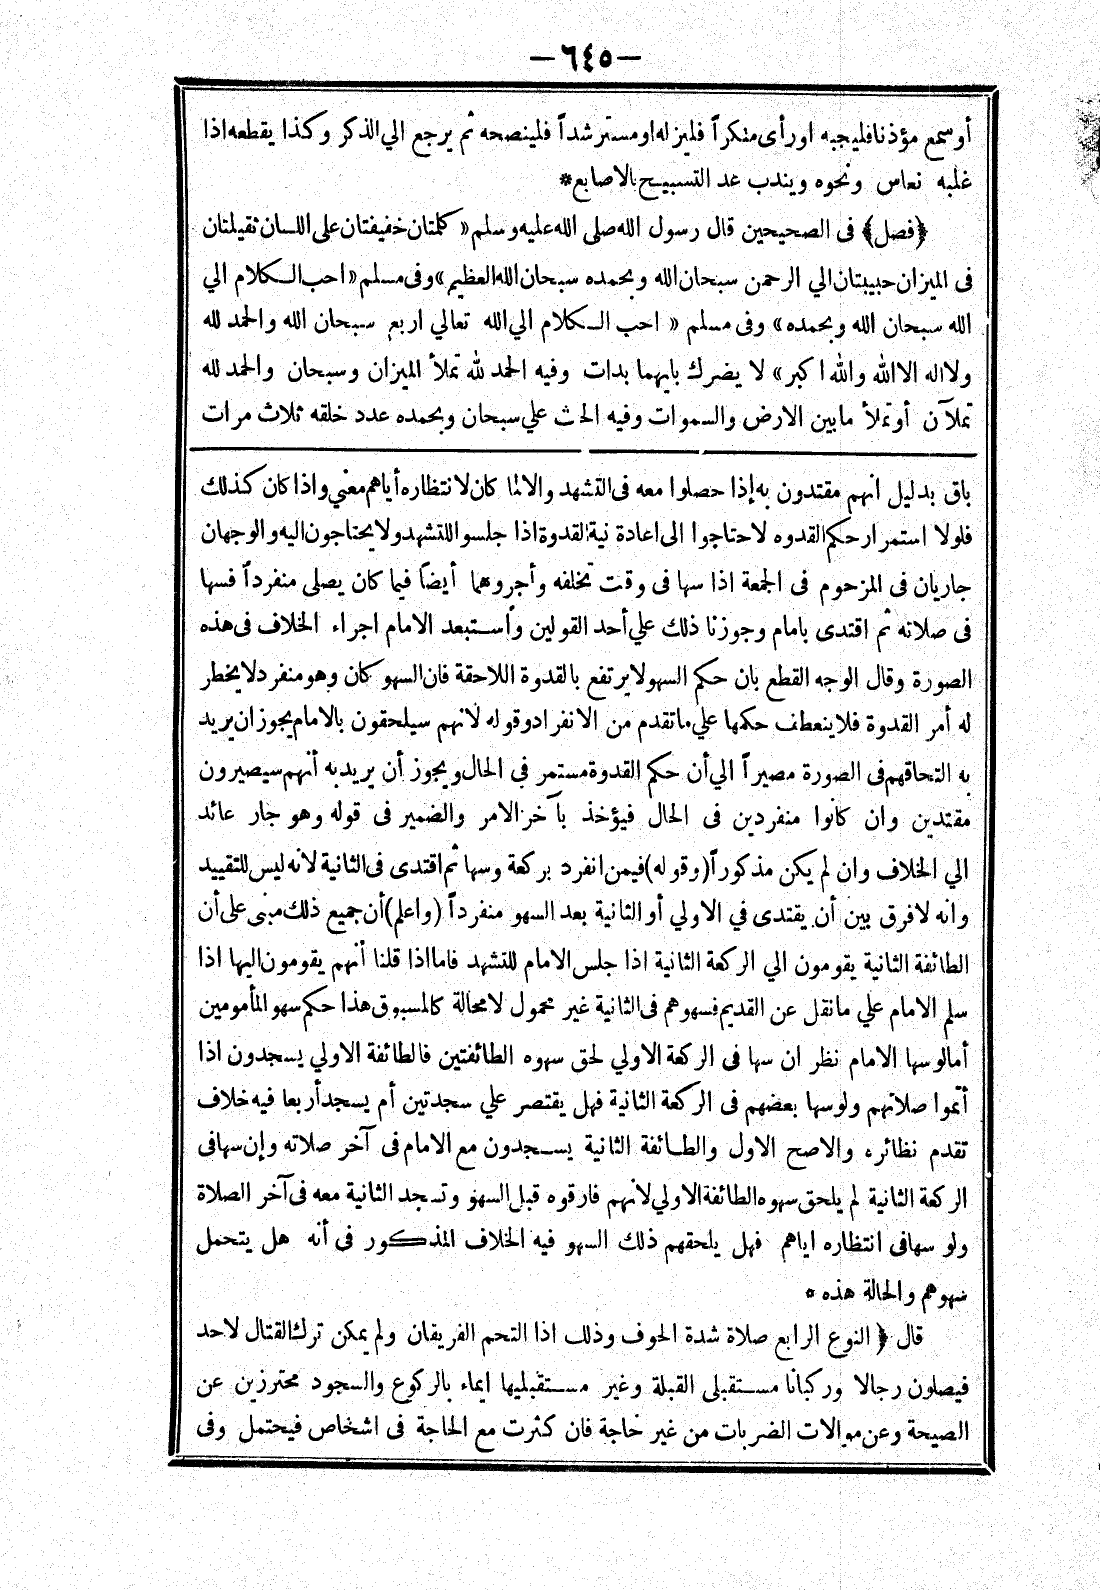 —٦٤٥—
أو سمع مؤذنا فليجبه او رأى منكراً فليزله او مسترشداً فلينصحه ثم يرجع الي الذكر وكذا يقطعه اذا
غلبه نعاس ونحوه ويندب عد التسبيح بالاصابع*
﴿فصل﴾ فى الصحيحين قال رسول الله صلى الله عليه وسلم «كلمتان خفيفتان على اللسان ثقيلتان
فى الميزان حبيبتان الي الرحمن سبحان الله وبحمده سبحان الله العظيم» وفى مسلم «احب الكلام الي
الله سبحان الله وبحمده» وفى مسلم «احب الكلام الي الله تعالي اربع سبحان الله والحمد لله
ولا اله الا الله والله اكبر» لا يضرك بايهما بدات وفيه الحمد لله تملأ الميزان وسبحان والحمد لله
تملآن أو تملأ ما بين الارض والسموات وفيه الحث علي سبحان وبحمده عدد خلقه ثلاث مرات
باق بدليل انهم مقتدون به إذا حصلوا معه فى التشهد والا لما كان لانتظاره أياهم معني واذا كان كذلك
فلولا استمرار حكم القدوه لاحتاجوا الى اعادة نية القدوة اذا جلسوا للتشهد ولا يحتاجون اليه والوجهان
جاريان فى المزحوم فى الجمعة اذا سها فى وقت تخلفه وأجروهما أيضاً فيما كان يصلى منفرداً فسها
فى صلاته ثم اقتدى بامام وجوزنا ذلك علي أحد القولين وأستبعد الامام اجراء الخلاف فى هذه
الصورة وقال الوجه القطع بان حكم السهو لا يرتفع بالقدوة اللاحقة فان السهو كان وهو منفرد لا يخطر
له أمر القدوة فلا ينعطف حكمها علي ما تقدم من الانفراد وقوله لانهم سيلحقون بالامام يجوز ان يريد
به التحاقهم فى الصورة مصيراً الي أن حكم القدوة مستمر في الحال ويجوز أن يريد به أنهم سيصيرون
مقتدين وان كانوا منفردين فى الحال فيؤخذ بآخر الامر والضمير فى قوله وهو جار عائد
الي الخلاف وان لم يكن مذكوراً (وقوله) فيمن انفرد بركعة وسها ثم اقتدى فى الثانية لانه ليس للتقييد
وانه لا فرق بين أن يقتدى في الاولي أو الثانية بعد السهو منفرداً (واعلم) أن جميع ذلك مبنى على أن
الطائفة الثانية يقومون الي الركعة الثانية اذا جلس الامام للتشهد فاما اذا قلنا أنهم يقومون اليها اذا
سلم الامام علي ما نقل عن القديم فسهوهم فى الثانية غير محمول لا محالة كالمسبوق هذا حكم سهو المأمومين
أما لو سها الامام نظر ان سها فى الركعة الاولي لحق سهوه الطائفتين فالطائفة الاولي يسجدون اذا
أتموا صلاتهم ولو سها بعضهم فى الركعة الثانية فهل يقتصر علي سجدتين أم يسجد أربعا فيه خلاف
تقدم نظائره والاصح الاول والطائفة الثانية يسجدون مع الامام فى آخر صلاته وإن سها فى
الركعة الثانية لم يلحق سهوه الطائفة الاولي لانهم فارقوه قبل السهو وتسجد الثانية معه فى آخر الصلاة
ولو سها فى انتظاره اياهم فهل يلحقهم ذلك السهو فيه الخلاف المذكور فى أنه هل يتحمل
سهوهم والحالة هذه *
قال ﴿النوع الرابع صلاة شدة الخوف وذلك اذا التحم الفريقان ولم يمكن ترك القتال لاحد
فيصلون رجالا وركبانا مستقبلى القبلة وغير مستقبليها ايماء بالركوع والسجود محترزين عن
الصيحة وعن موالات الضربات من غير حاجة فان كثرت مع الحاجة فى اشخاص فيحتمل وفى